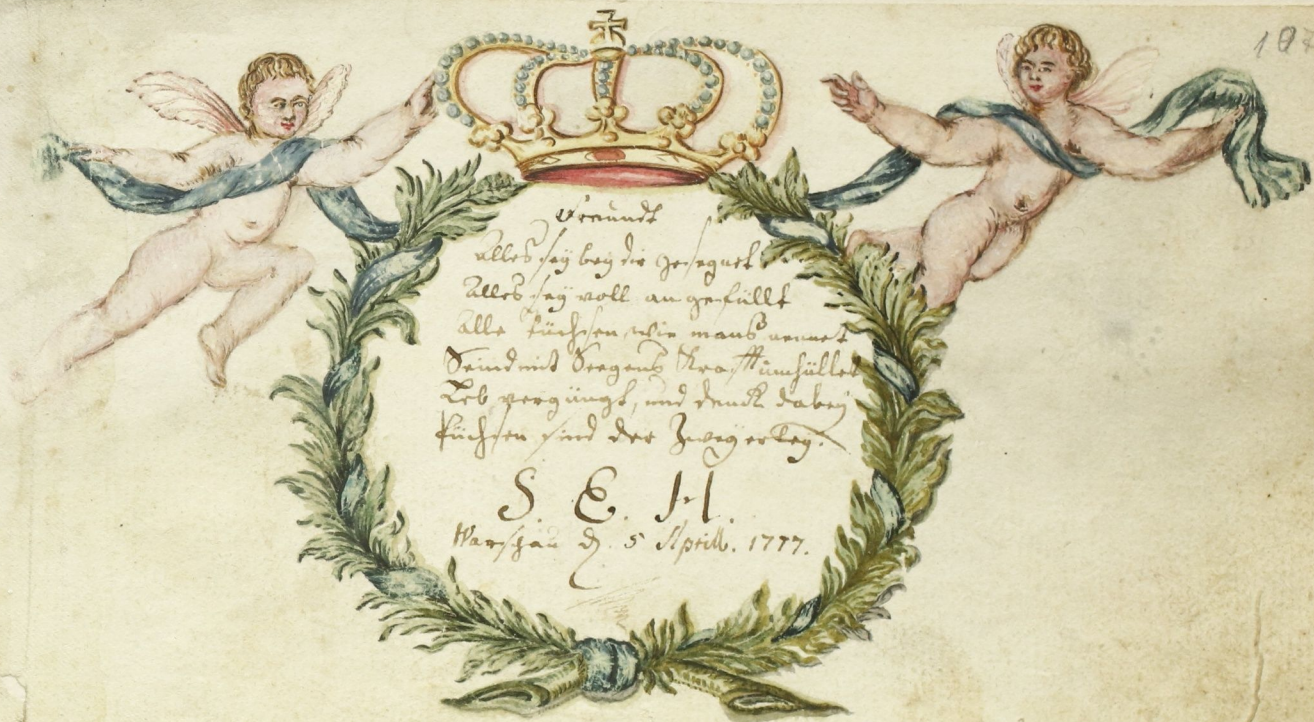 Freundt
Alles sey bey dir gesegnet
Alles sey voll angefüllt
Alle füchsen wie mans nennet
Seind mit Seegens Krafft umhüllet
Leb vergüngt, und denck dabey
füchsen sind der Zweyerley.
S. E. H.
Warschau d. 5 Aprill. 1777.